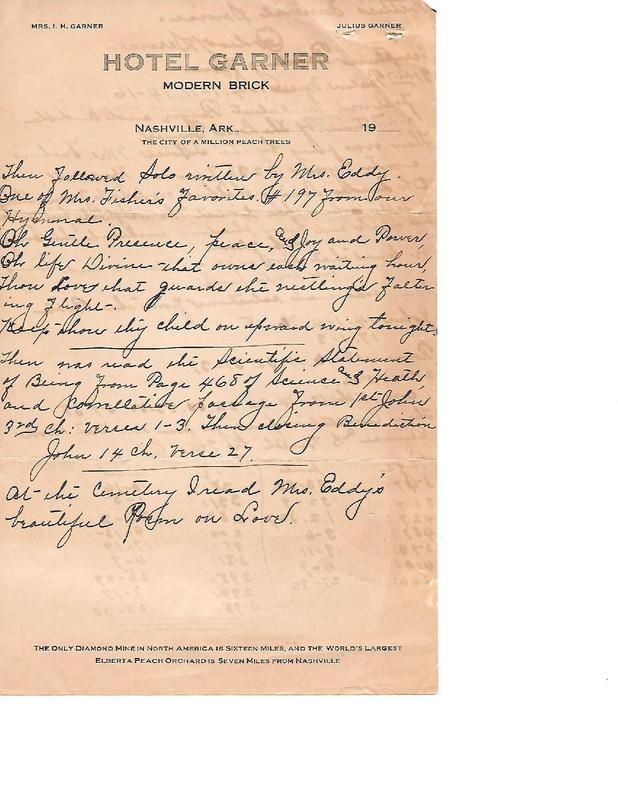 MRS. I. H. GARNER
JULIUS GARNER
HOTEL GARNER
MODERN BRICK
NASHVILLE, ARK., 19
THE CITY OF A MILLION PEACH TREES
Then Followed Solo written by Mrs. Eddy.
One of Mrs. Fisher's Favorites. #197 from our
Hymnal.
Oh Gentle Presence, peace, and Joy and Power,
Oh life Divine that owns each waiting hour,
Thou Love that guards the nestling's Falter-
ing Flight.
Keep thou thy child on upward wing tonight.
Then was read the Scientific Statement
of Being From Page 468 of Science and Heath,
and Correlative passage From 1st John
3rd ch: verses 1-3. Then closing Benediction
John 14 ch, Verse 27.
At the Cemetery I read Mrs. Eddy's
beautiful Poem on Love.
THE ONLY DIAMOND MINE IN NORTH AMERICA IS SIXTEEN MILES, AND THE WORLD'S LARGEST
ELBERTA PEACH ORCHARD IS SEVEN MILES FROM NASHVILLE